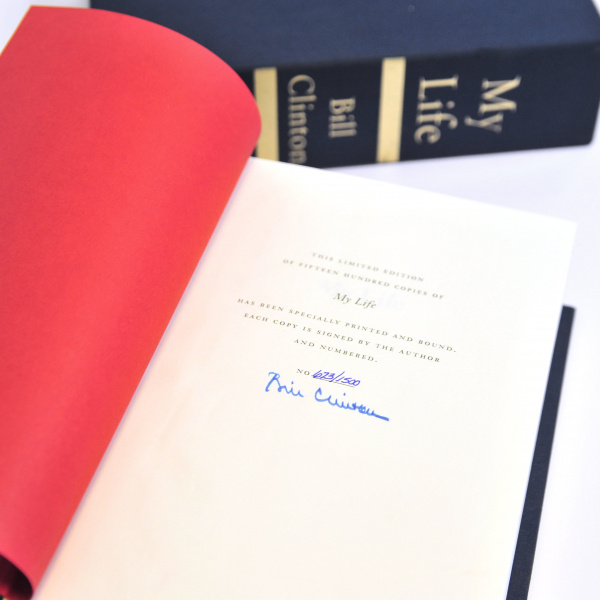 My Life
Bill Clinton
THIS LIMITED EDITION
OF FIFTEEN HUNDRED COPIES OF
My Life
HAS BEEN SPECIALLY PRINTED AND BOUND.
EACH COPY IS SIGNED BY THE AUTHOR
AND NUMBERED.
NO. 623/1500
Bill Clinton